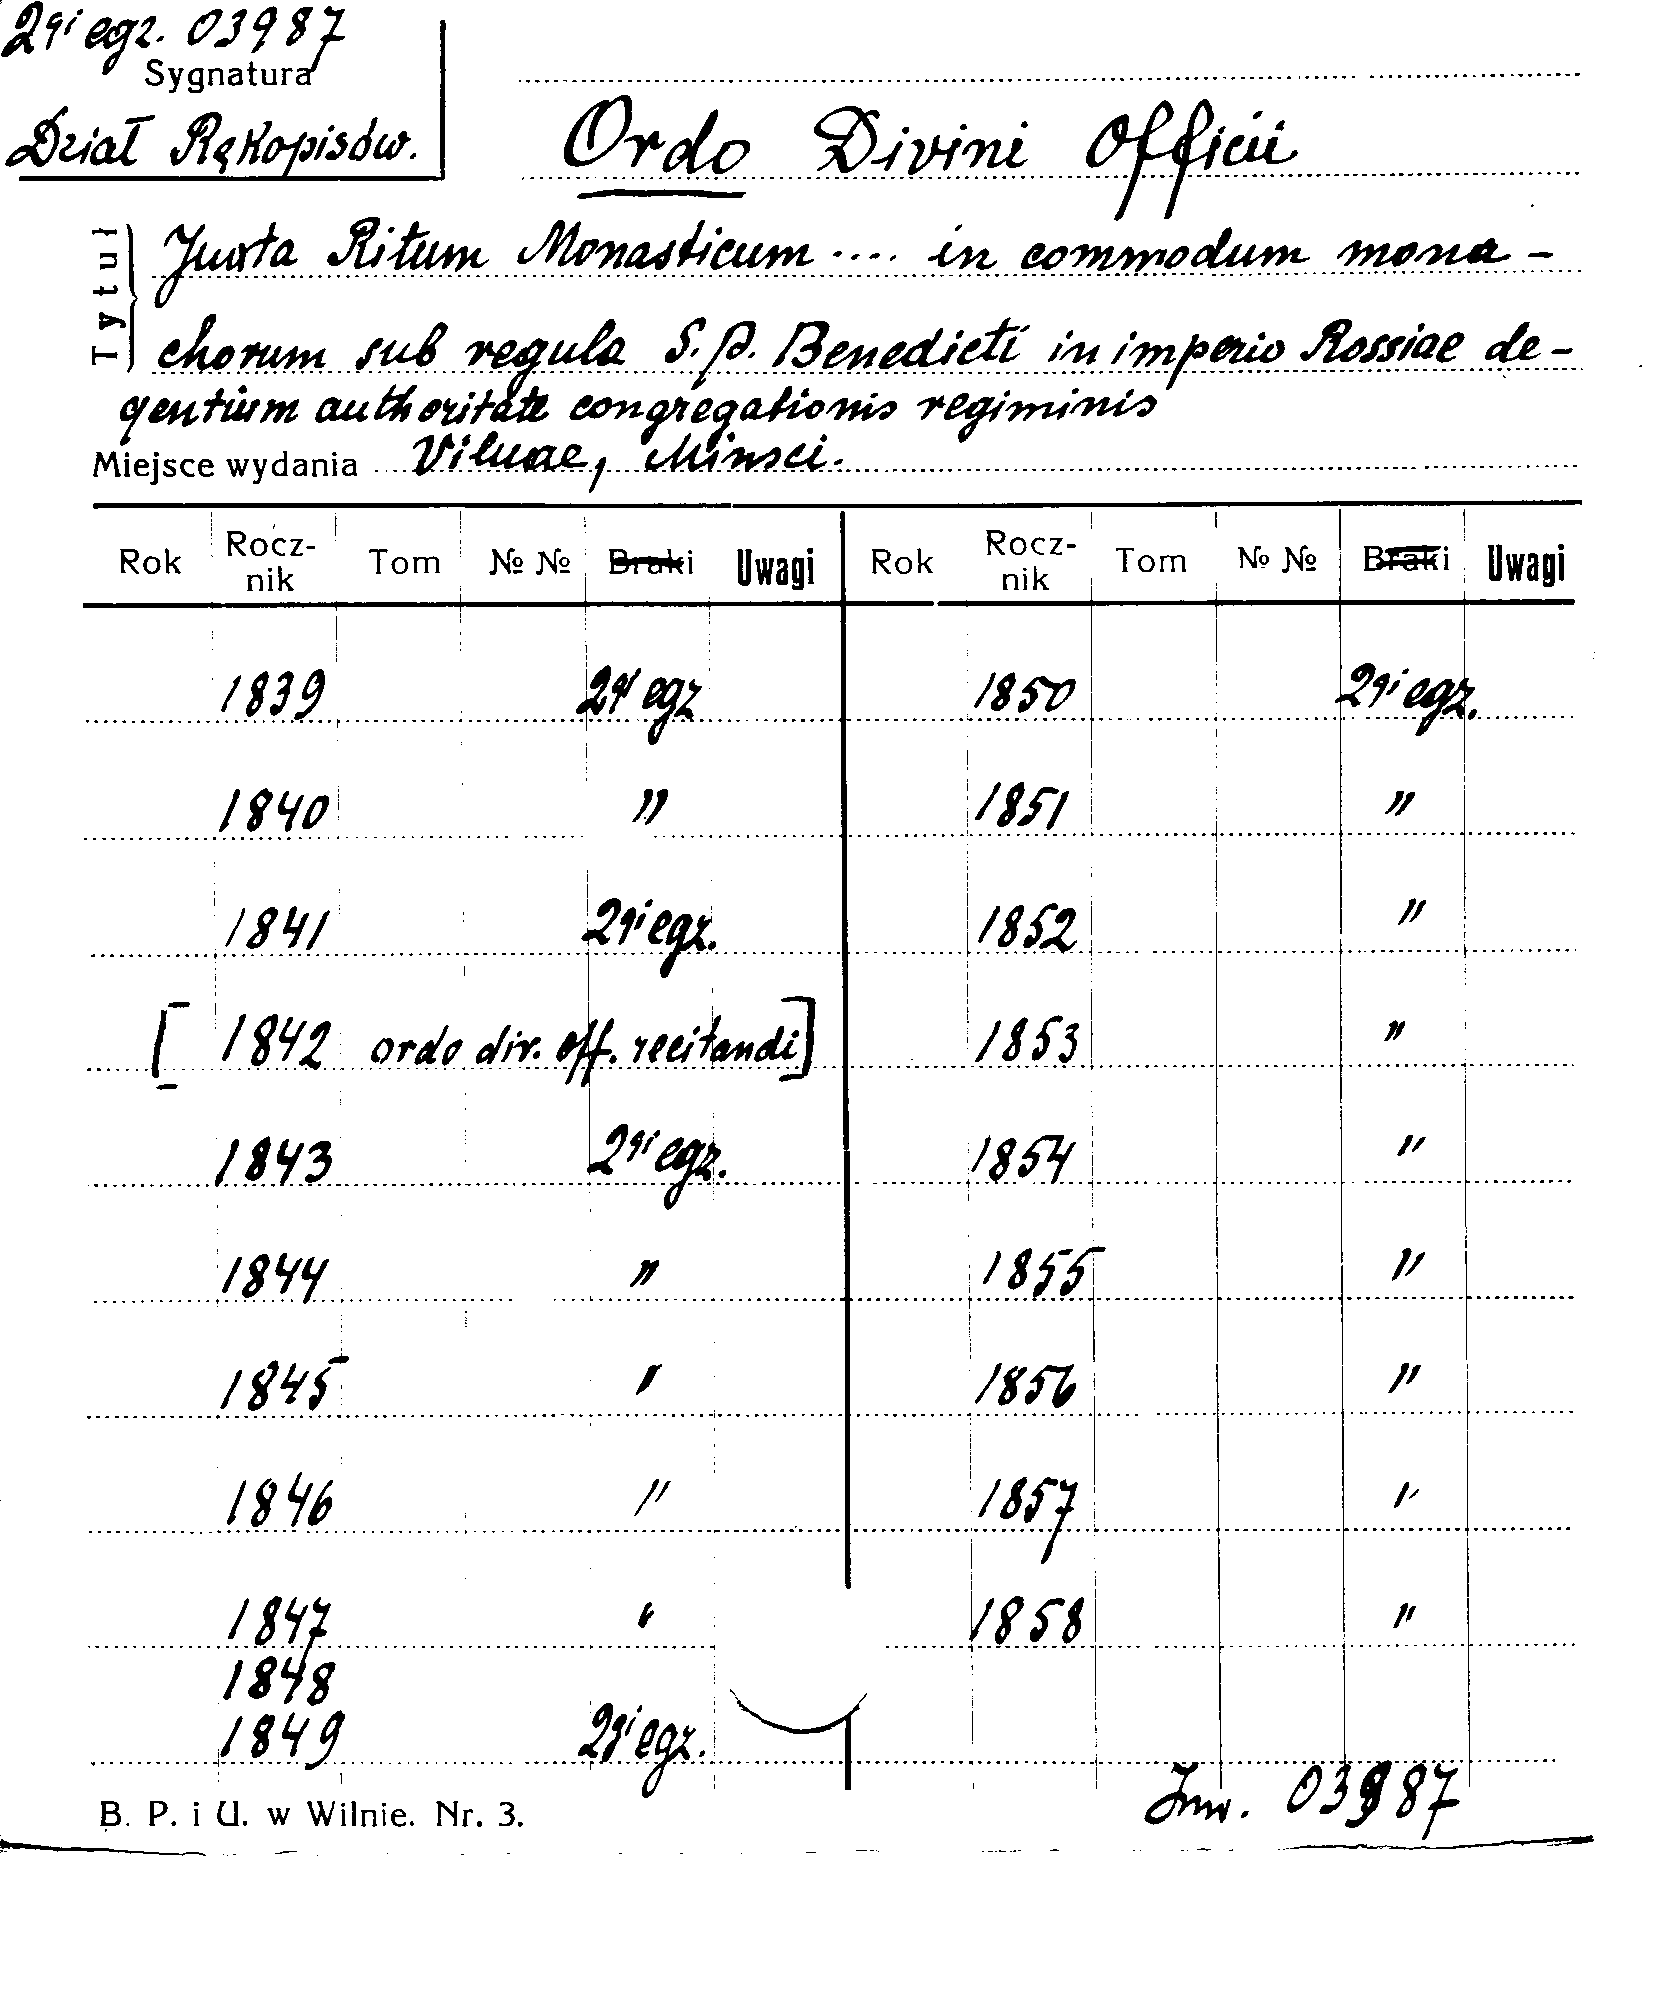 2gi egz. 03987
Sygnatura
Dział Rękopisów.
Ordo Divini Officii
Tytuł
Juxta Ritum Monasticum .... in commodum mona-
chorum sub regula S. p. Benedicti in imperio Rossiae de-
gentium authoritate congregationis regiminis
Miejsce wydania Vilnae, Minsci.
Rok Rocz-nik Tom № № Braki Uwagi Rok Rocz-nik Tom № № Braki Uwagi
1839 2gi egz 1850 2gi egz.
1840 " 1851 "
1841 2gi egz. 1852 "
[1842 ordo div. off. recitandi] 1853 "
1843 2gi egz. 1854 "
1844 " 1855 "
1845 " 1856 "
1846 " 1857 "
1847 " 1858 "
1848
1849 2gi egz.
Inw. 03987
B. P. i U. w Wilnie. Nr. 3.